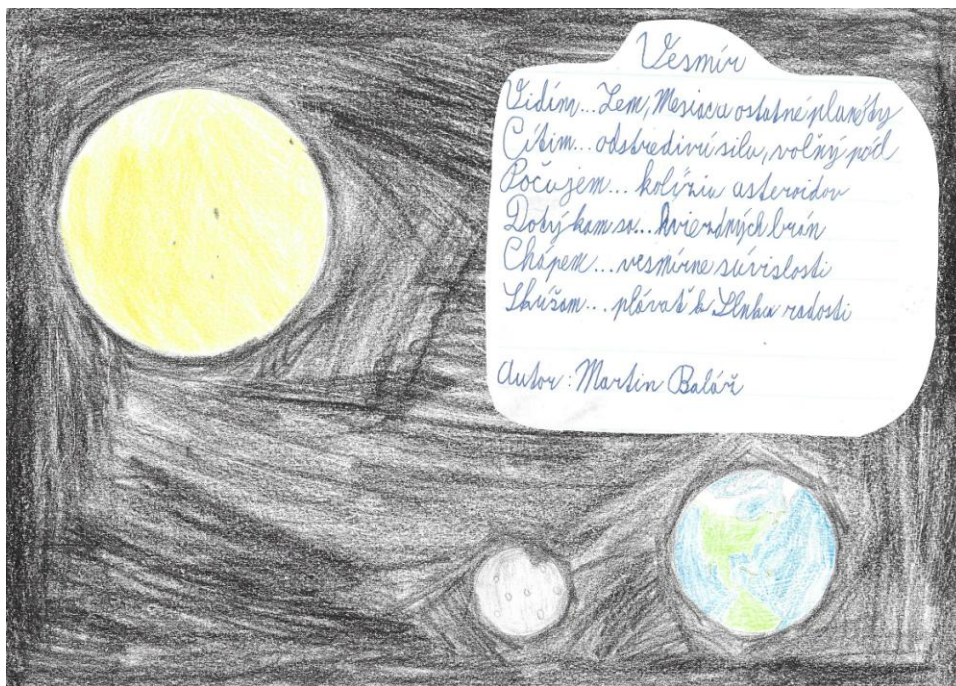 Vesmír
Vidím... Zem, Mesiac a ostatné planéty
Cítim... odstredivú silu, voľný pád
Počujem... kolíziu asteroidov
Dotýkam sa... hviezdnych brán
Chápem... vesmírne súvislosti
Skúšam... plávať k Slnku radosti
Autor: Martin Baláž